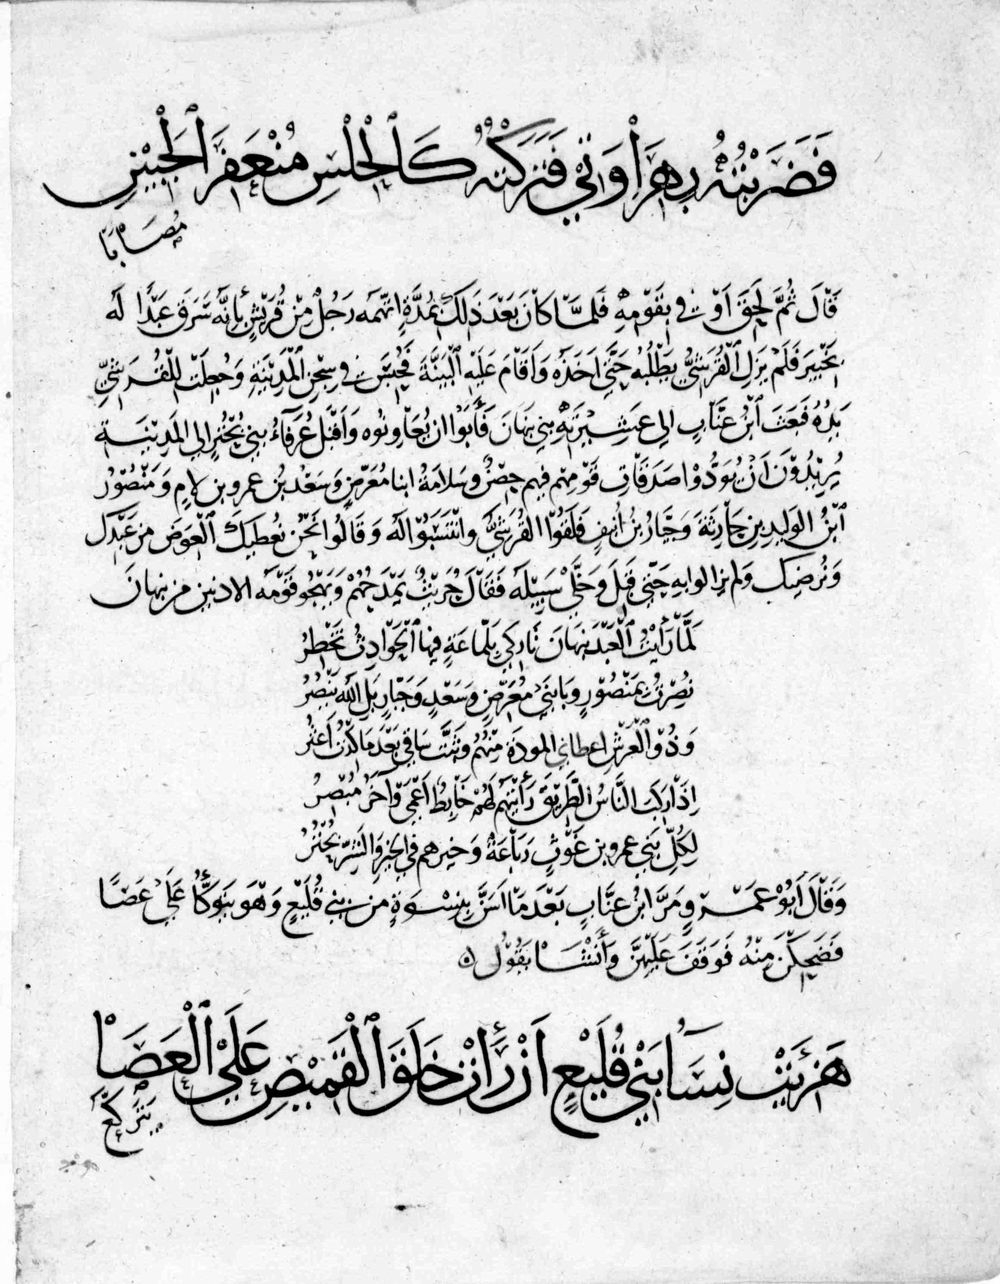 فَضَرَبْتُهُ بِهِرَاوَتِي فَتَرَكْتُهُ كَالْحِلْسِ مُنْعَفِرَ الْجَبِيْنِ
مُصَابَا
قَالَ ثُمَّ لَحِقَ أَوْفى بِقَوْمِهِ فَلَمَّا كَانَ بَعْدَ ذَلِكَ بِمُدَّةٍ اتَّهَمَهُ رَجُلٌ مِنْ قُرَيْشٍ بِأَنَّهُ سَرَقَ عَبْدًا لَهُ
بِخَيْبَرَ فَلَمْ يَزَلِ الْقُرَشِيُّ يَطْلُبُهُ حَتَّى اَخَذَهُ وَاَقَامَ عَلَيْهِ الْبَيِّنَةَ فَحُبِسَ فِي سِجْنِ الْمَدِيْنَةِ وَجُعِلَتْ لِلْقُرَشِيِّ
يَدُهُ فَبَعَثَ ابْنُ عَنَّابٍ الى عَشِيْرَتِهِ بني نَبْهَانَ فَأَبَوْا ان يُعَاوِنُوه وَاَقْبَلَ عُرَفَاءُ بني بُحْتُرٍ الى المَدِيْنَةِ
يُرِيْدُوْنَ اَنْ يُؤَدُّوْا صَدَقَاتِ قَوْمِهِم فيهم حِصْنٌ وَسَلامَةُ ابنا مُعَرِّضٍ وَسَعْدُ بنُ عمرو بن لامٍ وَمَنْصُوْرُ
ابْنُ الوَلِيدِ بنِ حَارِثَةَ وَجَبَّارُ بنُ اُنَيفٍ فَلَقُوْا الْقُرَشِيَّ وانْتَسَبُوْا لَهُ وَقَالُوا نَحْنُ نُعْطِيكَ الْعِوَضَ من عَبْدِكَ
وَنُرضِيكَ وَلم يَزالوا بِهِ حَتَّى قَبِلَ وَخَلَّى سَبِيْلَهُ فَقَالَ حُرَيْثٌ يَمْدَحُهُمْ وَيَهْجُو قَوْمَهُ الادنين من نبهانَ
لَمَّا رَأَيْتُ الْعَبْدَ نَبْهَانَ تَارِكِي بِلَمَّاعَةٍ فِيهَا الْحَوَادِثُ تَخْطِرُ
نُصِرْتُ بِمَنْصُوْرٍ وَبِابْنَيْ مُعَرِّضٍ وَسَعْدٍ وَجَبَّارٍ بَلِ اللهُ يَنْصُرُ
وَذُو الْعَرْشِ اعطَانِي المودةَ مِنْهُمُ وَثَبَّتَ سَاقي بَعْدَ مَا كِدْتُ أَعْثُرُ
اِذَا رَكِبَ النَّاسُ الطَّرِيْقَ رَأَيْتَهُمْ لَهُمْ خَابِطٌ أَعْمَى وَآخَرُ مُبْصِرُ
لِكُلِّ بَنِي عمرو بن غَوْثٍ رِبَاعَةٌ وَخيرهم في الخيرِ وَالشَّرِّ بُحْتُرُ
وَقَالَ اَبُوْ عَمْرٍو مَرَّ ابنُ عنَّابٍ بَعْدَ مَا اَسَنَّ بِنِسْوَةٍ من بني قُلَيْعٍ وَهْوَ يَتَوَكَّأُ عَلَى عَصًا
فَضَحِكْنَ مِنْهُ فَوَقَفَ عَلَيْهِنَّ وَأَنْشَا يَقُوْلُ ه
هَزِئَتْ نِسَاءُ بَنِي قُلَيْعٍ اَنْ رَأَيْنَ خَلَقَ الْقَمِيْصِ عَلَى الْعَصَا
يَتَرَكَّعُ